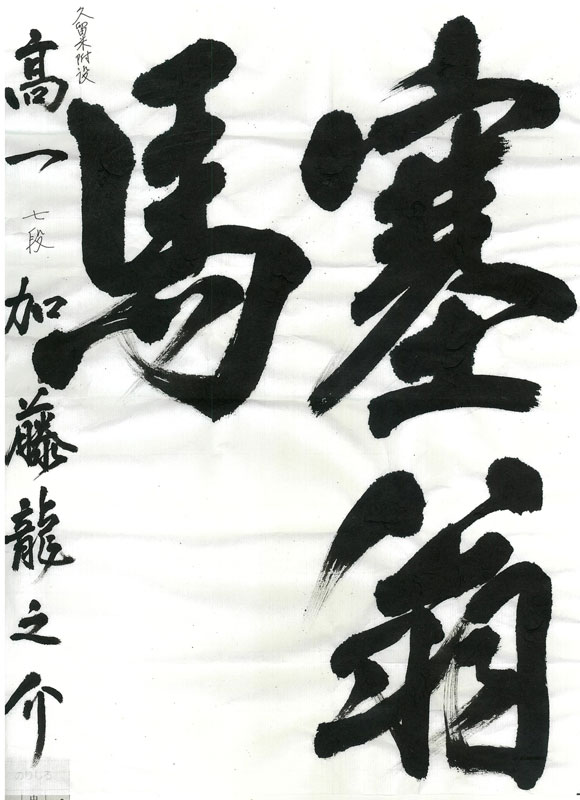 塞翁
馬
久留米附設
高一 七段 加藤龍之介
のりしろ